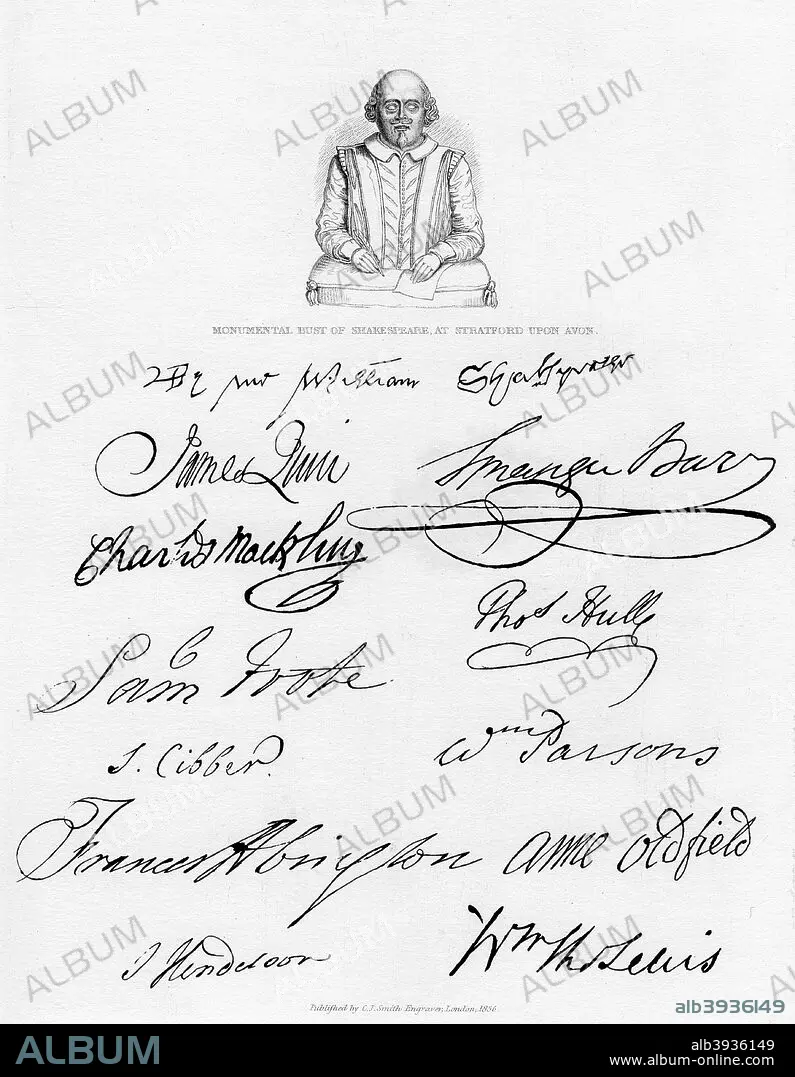 MONUMENTAL BUST OF SHAKESPEARE, AT STRATFORD UPON AVON.
By me William Shakspeare
James Quin
Spranger Barry
Charles Macklin
Thos Hull
Sam Foote
S. Cibber.
Wm Parsons
Frances Abington
Anne Oldfield
J Henderson
Wm Thos Lewis
Published by C. J. Smith Engraver, London, 1836
alb3936149
ALBUM
alb3936149
www.album-online.com